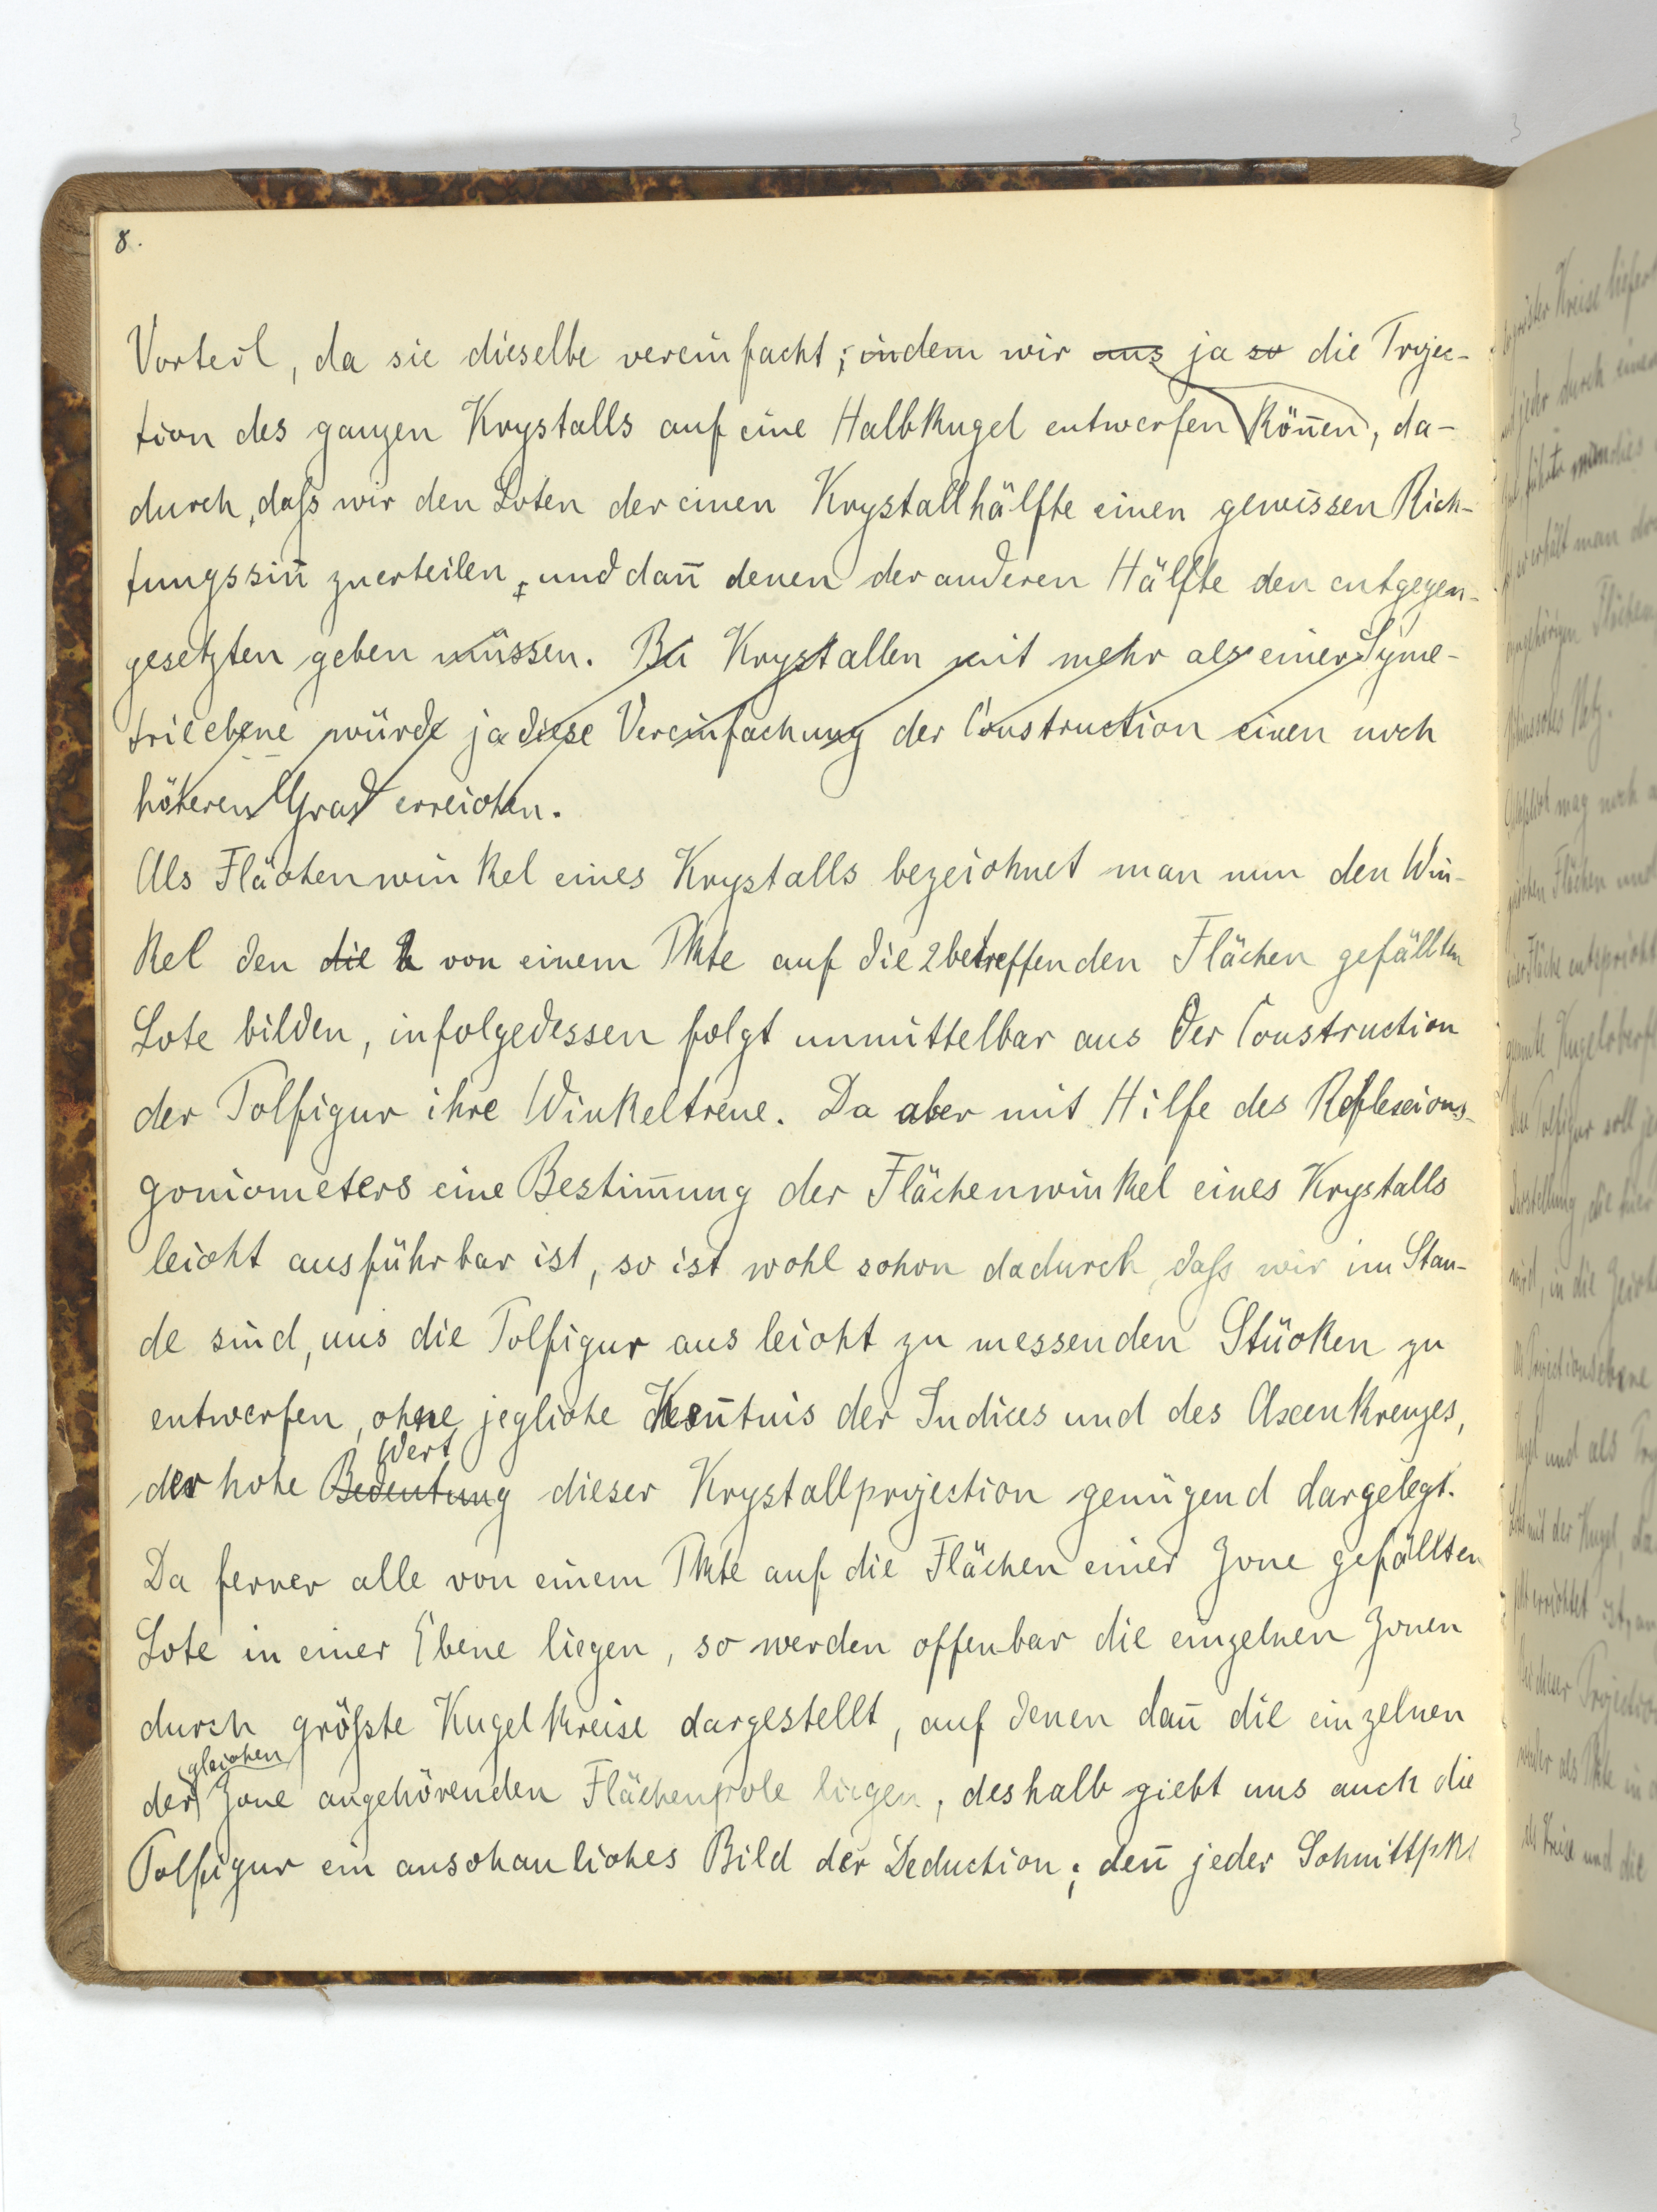 8.
Vorteil, da sie dieselbe vereinfacht; indem wir uns ja so die Projec-
tion des ganzen Krystalls auf eine Halbkugel entwerfen köñen, da-
durch, daſs wir den Loten der einen Krystallhälfte einen gewissen Rich-
tungssiñ zuerteilen, und dañ denen der anderen Hälfte den entgegen-
gesetzten geben müssen. Bei Krystallen mit mehr als einer Syme-
trieebene würde ja diese Vereinfachung der Construction einen noch
höheren Grad erreichen.
Als Flächenwinkel eines Krystalls bezeichnet man nun den Win-
kel den die 2 von einem Pkte auf die 2 betreffenden Flächen gefällten
Lote bilden, infolgedessen folgt unmittelbar aus der Construction
der Polfigur ihre Winkeltreue. Da aber mit Hilfe des Reflexions-
goniometers eine Bestim̄ung der Flächenwinkel eines Krystalls
leicht ausführbar ist, so ist wohl schon dadurch, daſs wir im Stan-
de sind, uns die Polfigur aus leicht zu messenden Stücken zu
entwerfen, ohne jegliche Keñtnis der Indices und des Axenkreuzes,
Wert
der hohe Bedeutung dieser Krystallprojection genügend dargelegt.
Da ferner alle von einem Pkte auf die Flächen einer Zone gefällten
Lote in einer Ebene liegen, so werden offenbar die einzelnen Zonen
durch gröſste Kugelkreise dargestellt, auf denen dañ die einzelnen
gleichen
der Zone angehörenden Flächenpole liegen, deshalb giebt uns auch die
Polfigur ein anschauliches Bild der Deduction; deñ jeder Schnittpkt